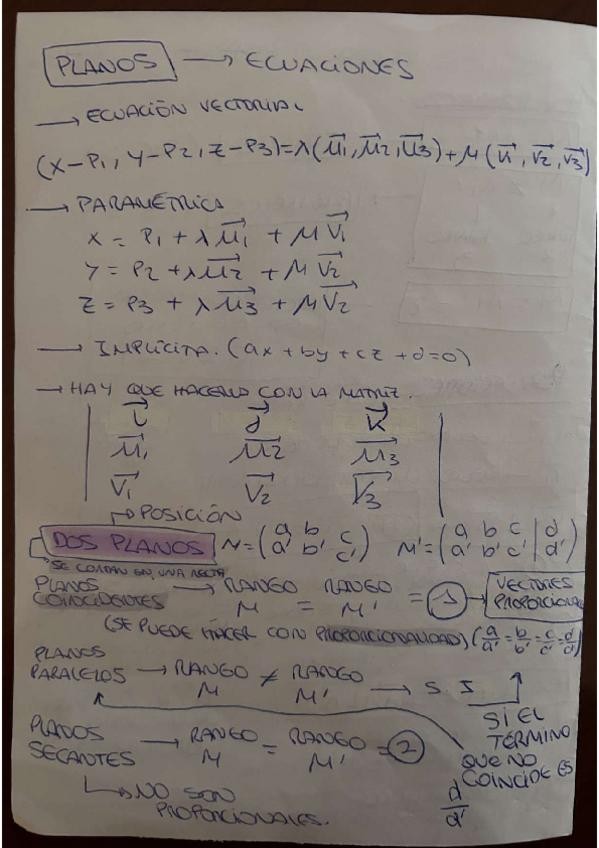 PLANOS → ECUACIONES
→ ECUACIÓN VECTORIAL
(x-P1, y-P2, z-P3)=λ(u⃗1, u⃗2, u⃗3)+μ(v⃗1, v⃗2, v⃗3)
→ PARAMÉTRICA
x = P1 + λu⃗1 + μv⃗1
y = P2 + λu⃗2 + μv⃗2
z = P3 + λu⃗3 + μv⃗2
→ IMPLÍCITA. (ax+by+cz+d=0)
→ HAY QUE HACERLO CON LA MATRIZ.
| i⃗ j⃗ k⃗ |
| u⃗1 u⃗2 u⃗3 |
| v⃗1 v⃗2 v⃗3 |
→ POSICIÓN
DOS PLANOS M=(a b c / a' b' c') M'=(a b c | d / a' b' c' | d')
*SE CORTAN EN UNA RECTA
PLANOS COINCIDENTES → RANGO M = RANGO M' = 1 → VECTORES PROPORCIONAL
(SE PUEDE HACER CON PROPORCIONALIDAD) (a/a'=b/b'=c/c'=d/d')
PLANOS PARALELOS → RANGO M ≠ RANGO M' → S.I
SI EL
TÉRMINO
QUE NO
COINCIDE ES
d/d'
PLANOS SECANTES → RANGO M = RANGO M' = 2
↳ NO SON
PROPORCIONALES.